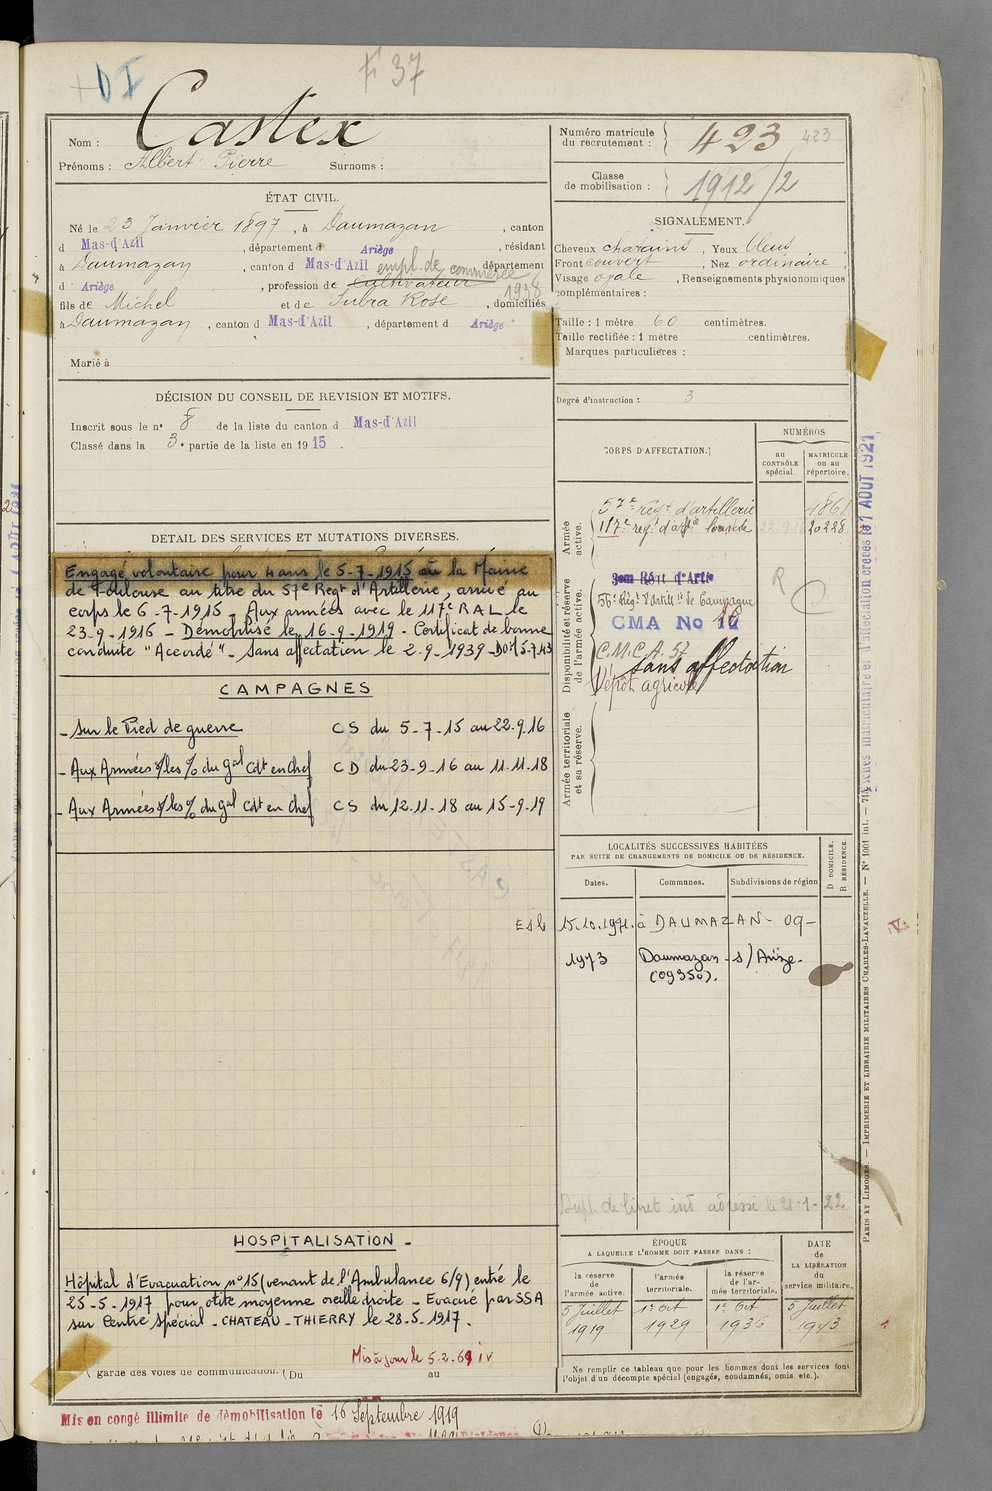 DI
F 37
Nom : Castex
Prénoms : Albert Pierre Surnoms :
Numéro matricule du recrutement : 423 423
Classe de mobilisation : 1912/2
ÉTAT CIVIL.
Né le 23 Janvier 1897, à Daumazan, canton
d Mas-d'Azil, département d Ariège, résidant
à Daumazan, canton d Mas-d'Azil empl. de commerce département
d Ariège, profession de cultivateur 1938
fils de Michel et de Subra Rose, domiciliés
à Daumazan, canton d Mas-d'Azil, département d Ariège
Marié à
SIGNALEMENT.
Cheveux chatains, Yeux bleus
Front couvert, Nez ordinaire,
Visage ovale, Renseignements physionomiques
complémentaires :
Taille : 1 mètre 60 centimètres.
Taille rectifiée : 1 mètre centimètres.
Marques particulières :
Degré d'instruction : 3
DÉCISION DU CONSEIL DE REVISION ET MOTIFS.
Inscrit sous le n° 8 de la liste du canton d Mas-d'Azil
Classé dans la 3e partie de la liste en 1915.
DETAIL DES SERVICES ET MUTATIONS DIVERSES.
Engagé volontaire pour 4 ans le 5-7-1915 à la Mairie
de Toulouse au titre du 57e Regt d'Artillerie, arrivé au
corps le 6-7-1915 - Aux armées avec le 117e RAL le
23-9-1916 - Démobilisé le 16-9-1919 - Certificat de bonne
conduite "Accordé" - Sans affectation le 2-9-1939 - DOI 5-7-43
CAMPAGNES
- Sur le Pied de guerre CS du 5-7-15 au 22-9-16
- Aux Armées s/les % du Gal Cdt en Chef CD du 23-9-16 au 11-11-18
- Aux Armées s/les % du Gal Cdt en Chef CS du 12-11-18 au 15-9-19
HOSPITALISATION -
Hôpital d'Evacuation n°15 (venant de l'Ambulance 6/9) entré le
25-5-1917 pour otite moyenne oreille droite - Evacué par SSA
sur Centre spécial - CHATEAU-THIERRY le 28-5-1917.
Mis à jour le 5-2-69
garde des voies de communication. ( Du au
Mis en congé illimité de démobilisation le 16 Septembre 1919
CORPS D'AFFECTATION.
NUMÉROS
AU CONTRÔLE spécial.
MATRICULE ou au répertoire.
Armée active.
57e régt d'artillerie 4861
117e régt d'artie lourde 20228
Disponibilité et réserve de l'armée active.
56e Régt d'Artillie de Campagne
CMA No 16
C.M.C.A. 57
Sans affectation
Dépôt agricole
R C
Armée territoriale et sa réserve.
LOCALITÉS SUCCESSIVES HABITÉES
PAR SUITE DE CHANGEMENTS DE DOMICILE OU DE RÉSIDENCE.
Dates. Communes. Subdivisions de région
D DOMICILE. R RÉSIDENCE.
15.10.1971. à DAUMAZAN - 09 -
1973 Daumazan - s/Arize -
(09350).
Dupl. de livret ind adressé le 21-1-22
ÉPOQUE
A LAQUELLE L'HOMME DOIT PASSER DANS :
DATE de LA LIBÉRATION du service militaire.
la réserve de l'armée active.
l'armée territoriale.
la réserve de l'armée territoriale.
5 Juillet 1919
1er Oct 1929
1er Oct 1936
5 Juillet 1943
Ne remplir ce tableau que pour les hommes dont les services font
l'objet d'un décompte spécial (engagés, condamnés, omis etc.).
PARIS ET LIMOGES. — IMPRIMERIE ET LIBRAIRIE MILITAIRES CHARLES-LAVAUZELLE. — N° 1001 int.